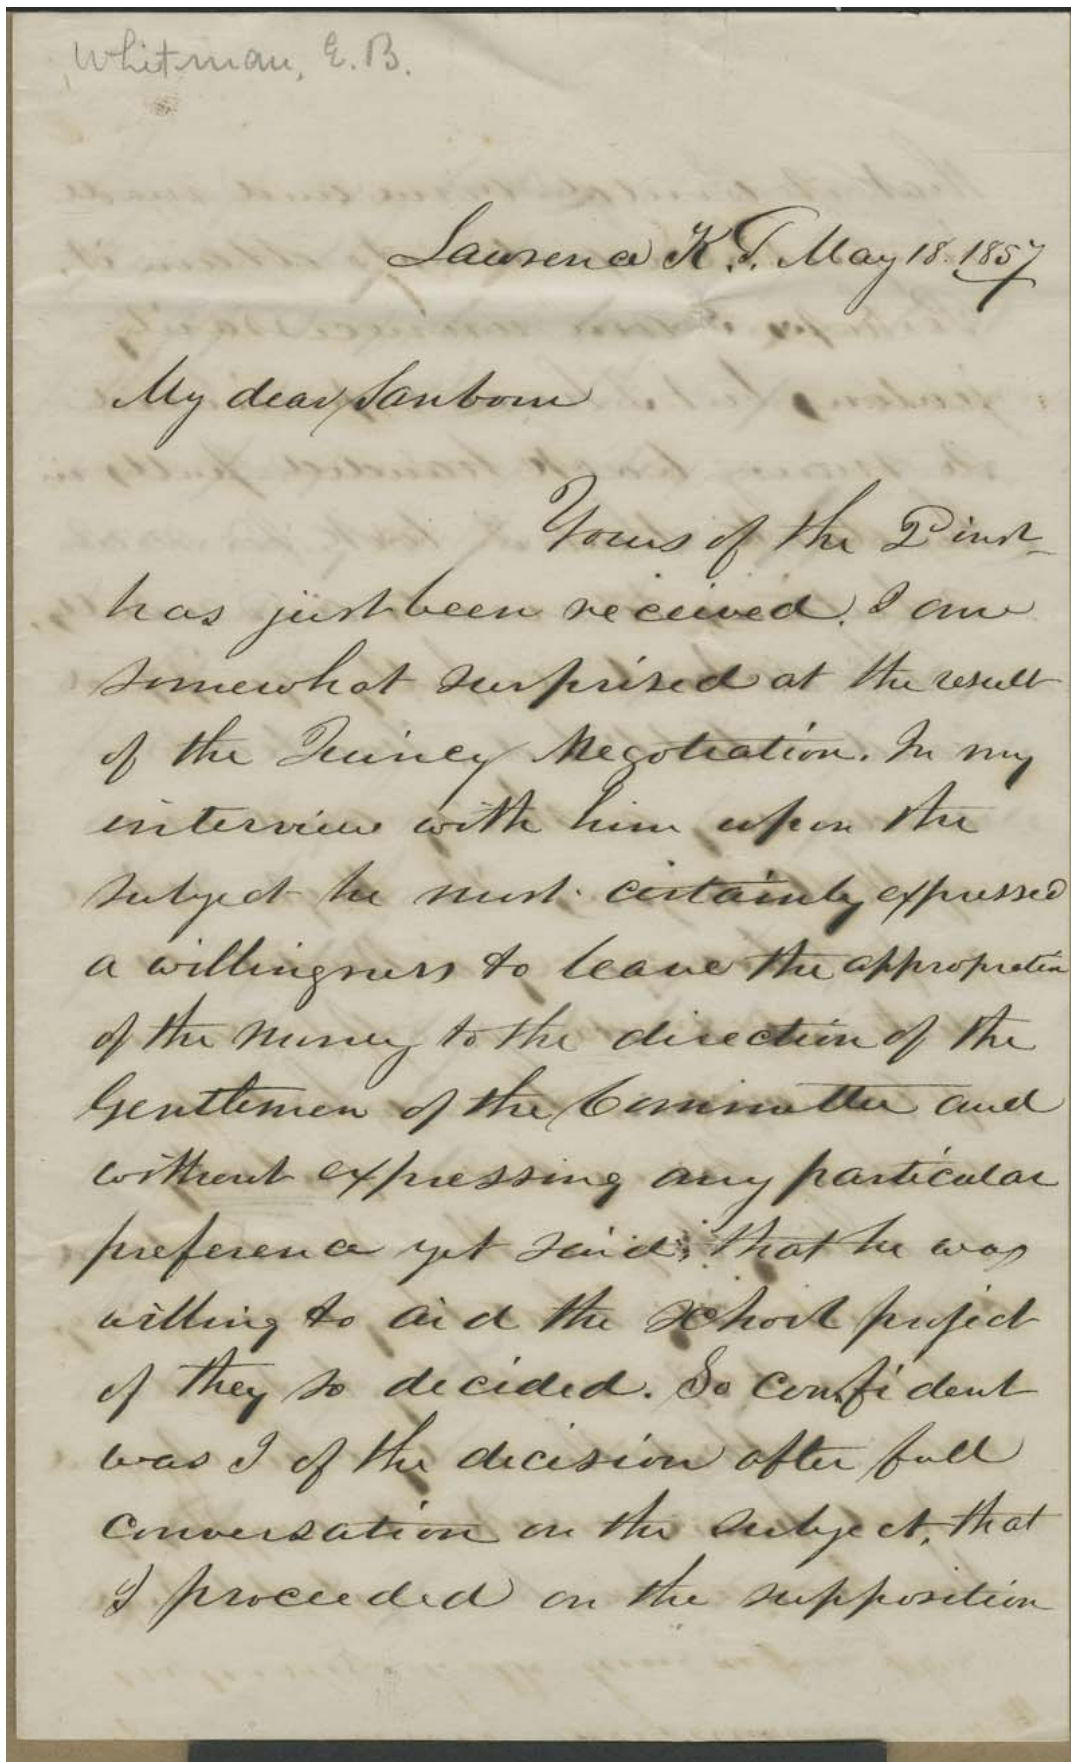 Whitman, E. B.
Lawrence K. T. May 18. 1857
My dear Sanborn
Yours of the 2d inst
has just been received. I am
somewhat surprised at the result
of the Quincy Negotiation. In my
interview with him upon the
subject he most certainly expressed
a willingness to leave the appropriation
of the money to the direction of the
Gentlemen of the Committee and
without expressing any particular
preference yet said, that he was
willing to aid the school project
if they so decided. So confident
was I of the decision after full
conversation on the subject, that
I proceeded on the supposition